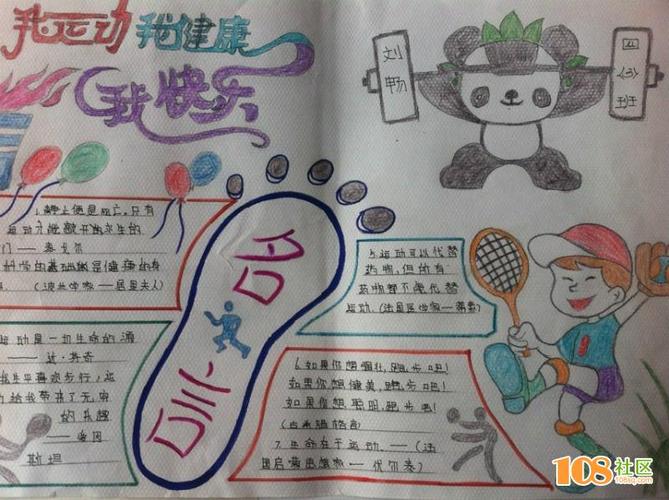 我运动 我健康
我快乐
刘畅
四(3)班
1.静止便是死亡,只有
运动才能敲开永生的
门——泰戈尔
科学的基础是健康的身
(波兰学家——居里夫人)
运动是一切生命的源
——达·芬奇
生平喜欢步行,运
给我带来了无穷
的乐趣
——爱因
斯坦
名言
5.运动可以代替
药物,但所有
药物都不能代替
运动。
6.如果你想强壮,跑步吧!
如果你想健美,跑步吧!
如果你想聪明,跑步吧!
7.生命在于运动——(法
国启蒙思想家——伏尔泰)
108社区